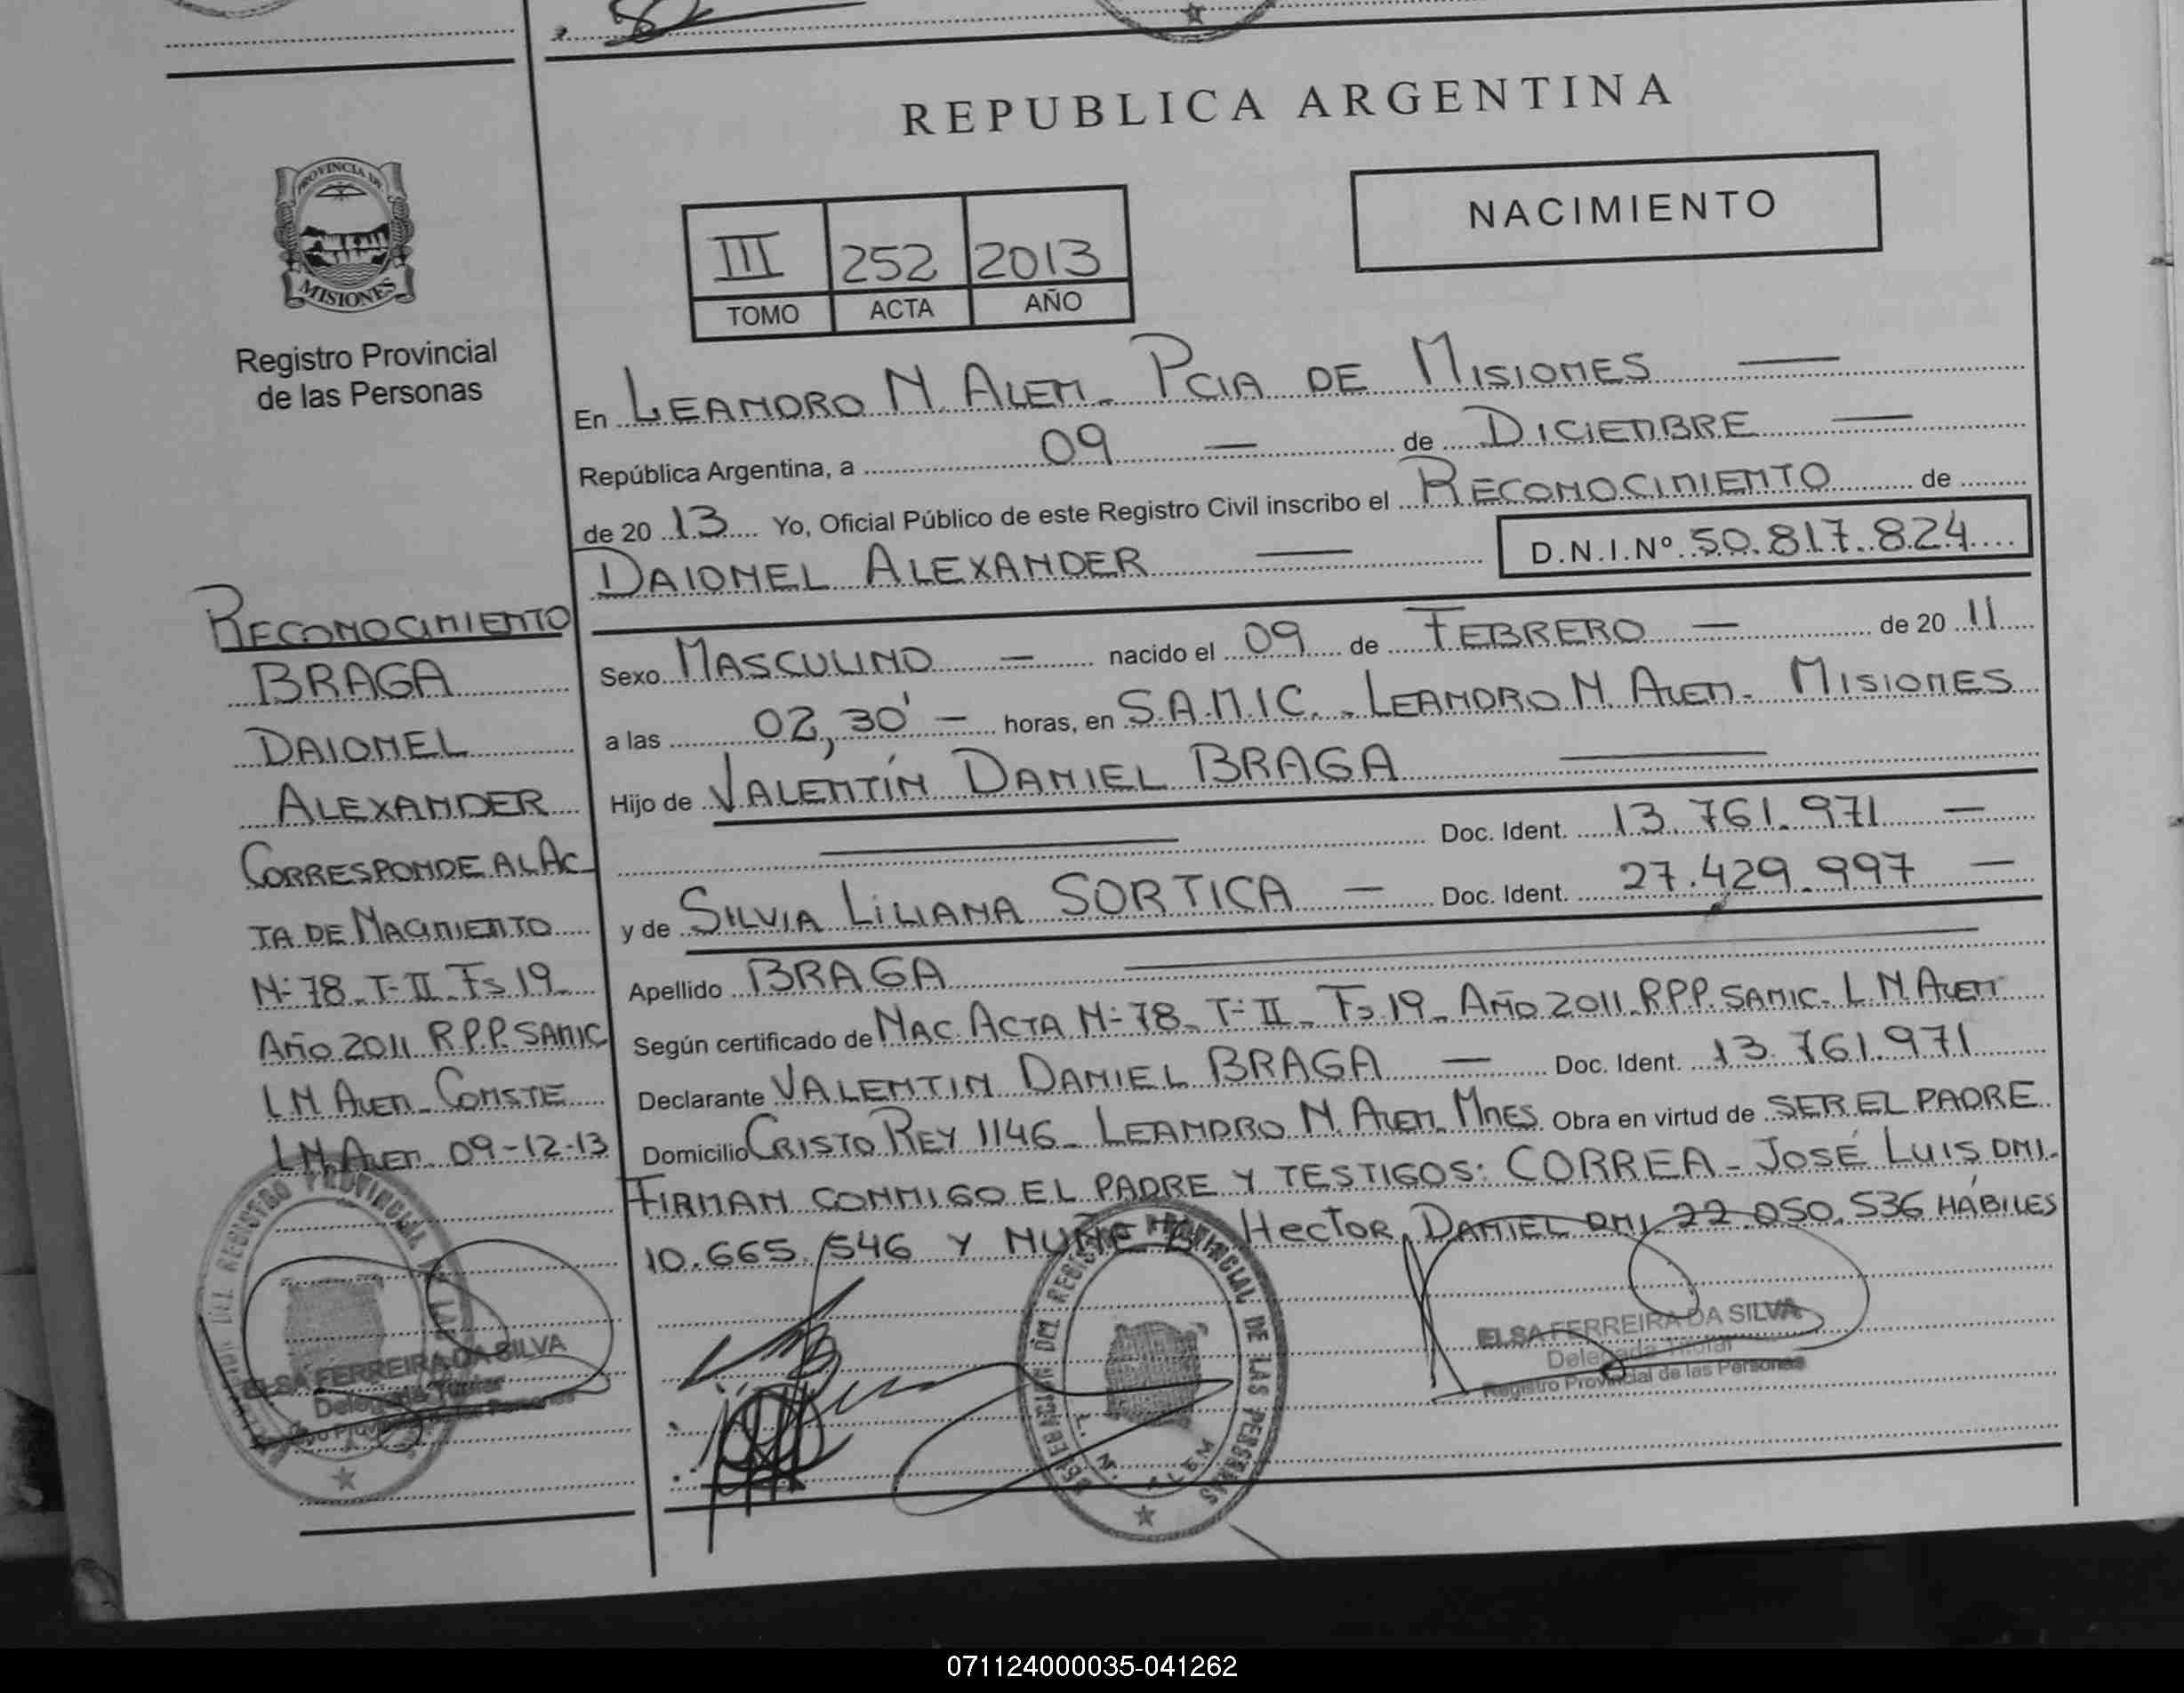 REPUBLICA ARGENTINA
PROVINCIA DE
MISIONES
Registro Provincial
de las Personas
NACIMIENTO
III 252 2013
TOMO ACTA AÑO
En LEANDRO N. ALEM - PCIA DE MISIONES —
República Argentina, a 09 — de DICIEMBRE —
de 20 13 Yo, Oficial Público de este Registro Civil inscribo el RECONOCIMIENTO de
DAIONEL ALEXANDER — D.N.I.Nº 50.817.824
Sexo MASCULINO — nacido el 09 de FEBRERO — de 20 11
a las 02,30' — horas, en S.A.M.I.C. - LEANDRO N. ALEM - MISIONES
Hijo de VALENTÍN DANIEL BRAGA —
— Doc. Ident. 13.761.971 —
y de SILVIA LILIANA SORTICA — Doc. Ident. 27.429.997 —
Apellido BRAGA —
Según certificado de NAC. ACTA Nº 78 - Tº II - Fs 19 - AÑO 2011. R.P.P. SAMIC - L N ALEM
Declarante VALENTIN DANIEL BRAGA — Doc. Ident. 13.761.971
Domicilio CRISTO REY 1146 - LEANDRO N. ALEM. MNES. Obra en virtud de SER EL PADRE
FIRMAN CONMIGO EL PADRE Y TESTIGOS: CORREA - JOSÉ LUIS DNI.
10.665.546 Y Hector DANIEL DNI 22.050.536 HÁBILES
RECONOCIMIENTO
BRAGA
DAIONEL
ALEXANDER
CORRESPONDE AL AC-
TA DE NACIMIENTO
Nº 78 - Tº II - Fs 19 -
AÑO 2011 R.P.P. SAMIC
L N ALEM - CONSTE
L N. ALEM - 09-12-13
ELSA FERREIRA DA SILVA
Delegada Titular
DEL REGISTRO PROVINCIAL DE LAS PERSONAS
L. N. ALEM
ELSA FERREIRA DA SILVA
Delegada Titular
Registro Provincial de las Personas
071124000035-041262